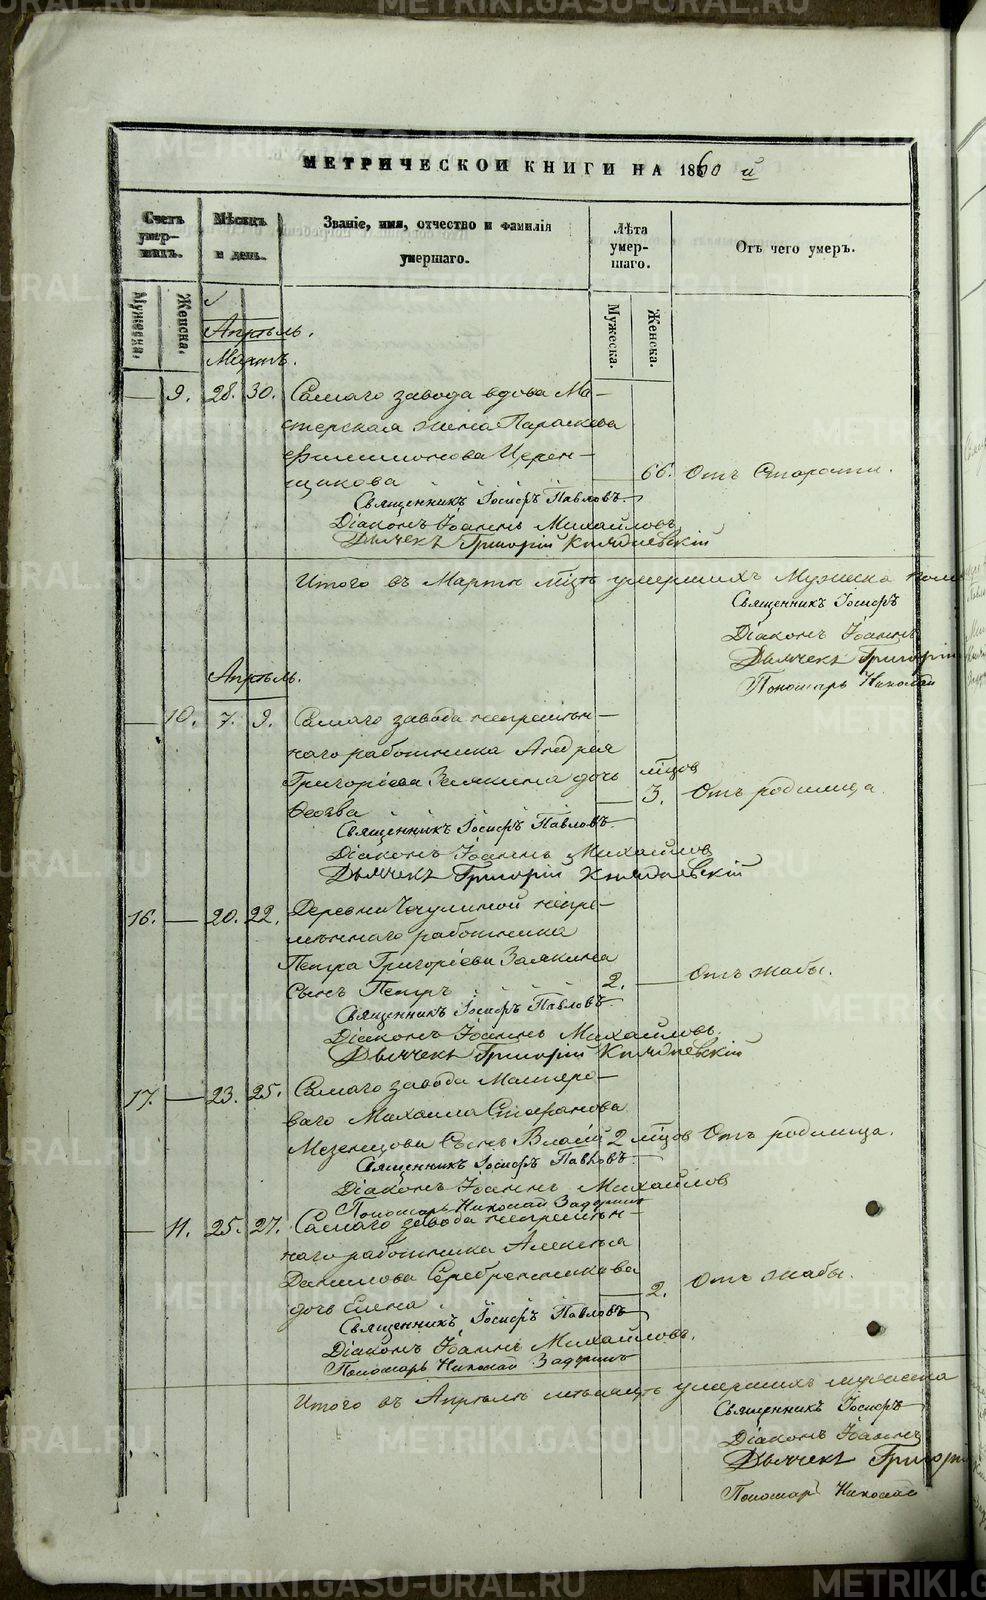 МЕТРИЧЕСКОЙ КНИГИ НА 1860 й
Счетъ умер-шихъ.
Мѣсяцъ и день.
Званіе, имя, отчество и фамилія умершаго.
Лѣта умер-шаго.
Отъ чего умеръ.
Мужеска.
Женска.
Мужеска.
Женска.
Апрѣль.
Мартъ.
— 9. 28. 30. Самаго завода вдова Ма-
стерская жена Параскева
Филимонова
щикова 66. Отъ Старости.
Священникъ Іосифъ Павловъ
Діаконъ Іоаннъ Михайловъ
Дьячекъ Григорій
Итого въ Мартѣ мѣсц умершихъ Мужеска пола
Священникъ Іосифъ
Діаконъ Іоаннъ
Дьячекъ Григорій
Пономарь Николай
Апрѣль.
— 10. 7. 9. Самаго завода непремѣн-
наго работника Андрея
Григоріева Зямкина дочь мѣсцов
Ѳеозва — 3. Отъ родимца.
Священникъ Іосифъ Павловъ
Діаконъ Іоаннъ Михайлов
Дьячекъ Григорій
16. — 20. 22. Деревни непре-
мѣннаго работника
Петра Григоріева Зямкина
Сынъ Петръ 2. — Отъ жабы.
Священникъ Іосифъ Павловъ
Діаконъ Іоаннъ Михайловъ.
Дьячекъ Григорій
17. — 23. 25. Самаго завода Мастеро-
ваго Михаила Стефанова
Мезенцова Сынъ Власій 2 мѣсцов Отъ родимца.
Священникъ Іосифъ Павловъ
Діаконъ Іоаннъ Михайлов
Пономарь Николай Задоринъ
— 11. 25. 27. Самаго завода непремѣн-
наго работника Алексѣя
Данилова Серебренникова
дочь Елена — 2. Отъ жабы.
Священникъ Іосифъ Павловъ
Діаконъ Іоаннъ Михайловъ.
Пономарь Николай Задоринъ
Итого въ Апрѣлѣ мѣсяцѣ умершихъ мужеска
Священникъ Іосифъ
Діаконъ Іоаннъ
Дьячекъ Григорій
Пономарь Николай
METRIKI.GASO-URAL.RU